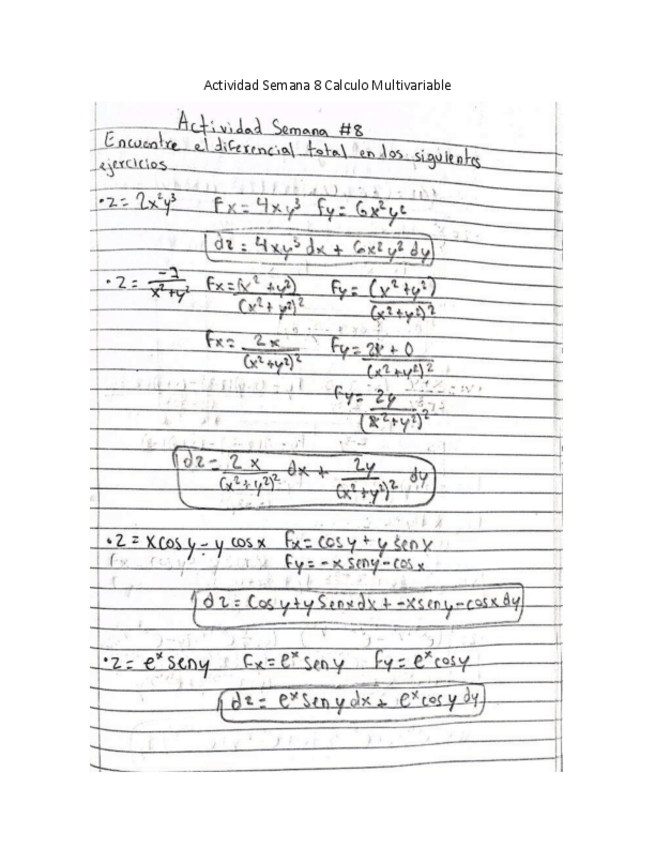 Actividad Semana 8 Calculo Multivariable
Actividad Semana #8
Encuentre el diferencial total en los siguientes
ejercicios
• z = 2x²y³ Fx = 4xy³ Fy = 6x²y²
dz = 4xy³ dx + 6x²y² dy
• z = -1/(x²+y²) Fx = (x²+y²)/(x²+y²)² Fy = (x²+y²)/(x²+y²)²
Fx = 2x/(x²+y²)² Fy = 2y + 0/(x²+y²)²
Fy = 2y/(x²+y²)²
dz = 2x/(x²+y²)² dx + 2y/(x²+y²)² dy
• z = x cos y - y cos x Fx = cos y + y sen x
Fy = -x sen y - cos x
dz = Cos y + y Sen x dx + -x sen y - cos x dy
• z = eˣ sen y Fx = eˣ sen y Fy = eˣ cos y
dz = eˣ sen y dx + eˣ cos y dy